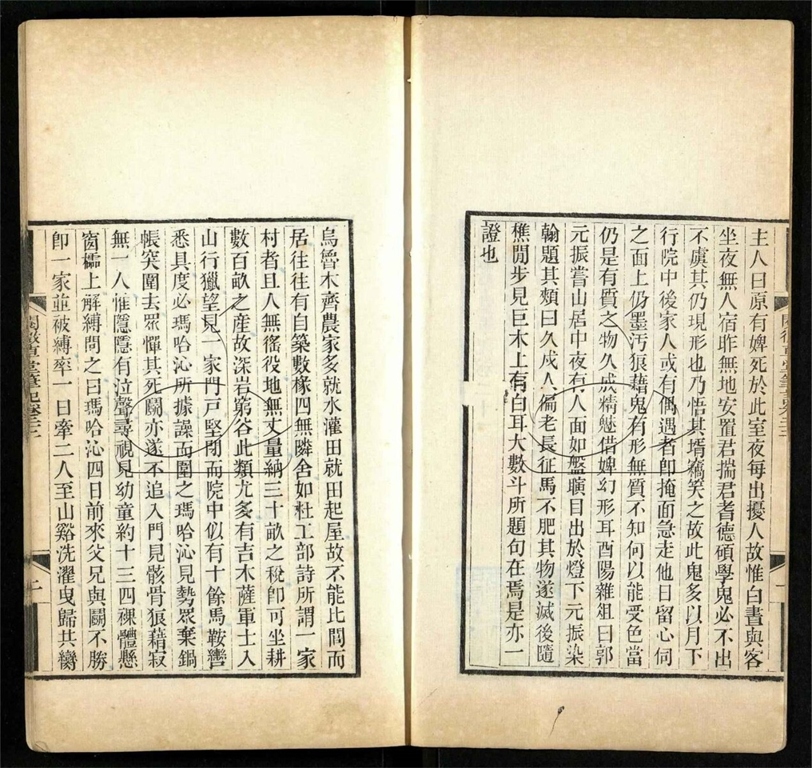 主人曰原有婢死於此室夜每出擾人故惟白晝與客
坐夜無人宿昨無地安置君揣君耆德碩學鬼必不出
不虞其仍現形也乃悟其壻竊笑之故此鬼多以月下
行院中後家人或有偶遇者卽掩面急走他日留心伺
之面上仍墨汚狼藉鬼有形無質不知何以能受色當
仍是有質之物久成精魅借婢幻形耳酉陽雜俎曰郭
元振嘗山居中夜有人面如盤瞚目出於燈下元振染
翰題其頰曰久戍人偏老長征馬不肥其物遂滅後隨
樵閒步見巨木上有白耳大數斗所題句在焉是亦一
證也
烏魯木齊農家多就水灌田就田起屋故不能比閭而
居往往有自築數椽四無隣舍如杜工部詩所謂一家
村者且人無徭役地無丈量納三十畝之稅卽可坐耕
數百畝之產故深岩窮谷此類尤多有吉木薩軍士入
山行獵望見一家門戶堅閉而院中似有十餘馬鞍轡
悉具度必瑪哈沁所據譟而圍之瑪哈沁見勢眾棄鍋
帳突圍去眾憚其死鬭亦遂不追入門見骸骨狼藉寂
無一人惟隱隱有泣聲尋視見幼童約十三四裸體懸
窗櫺上解縛問之曰瑪哈沁四日前來父兄與鬭不勝
卽一家並被縛率一日牽二人至山谿洗濯曳歸共臠